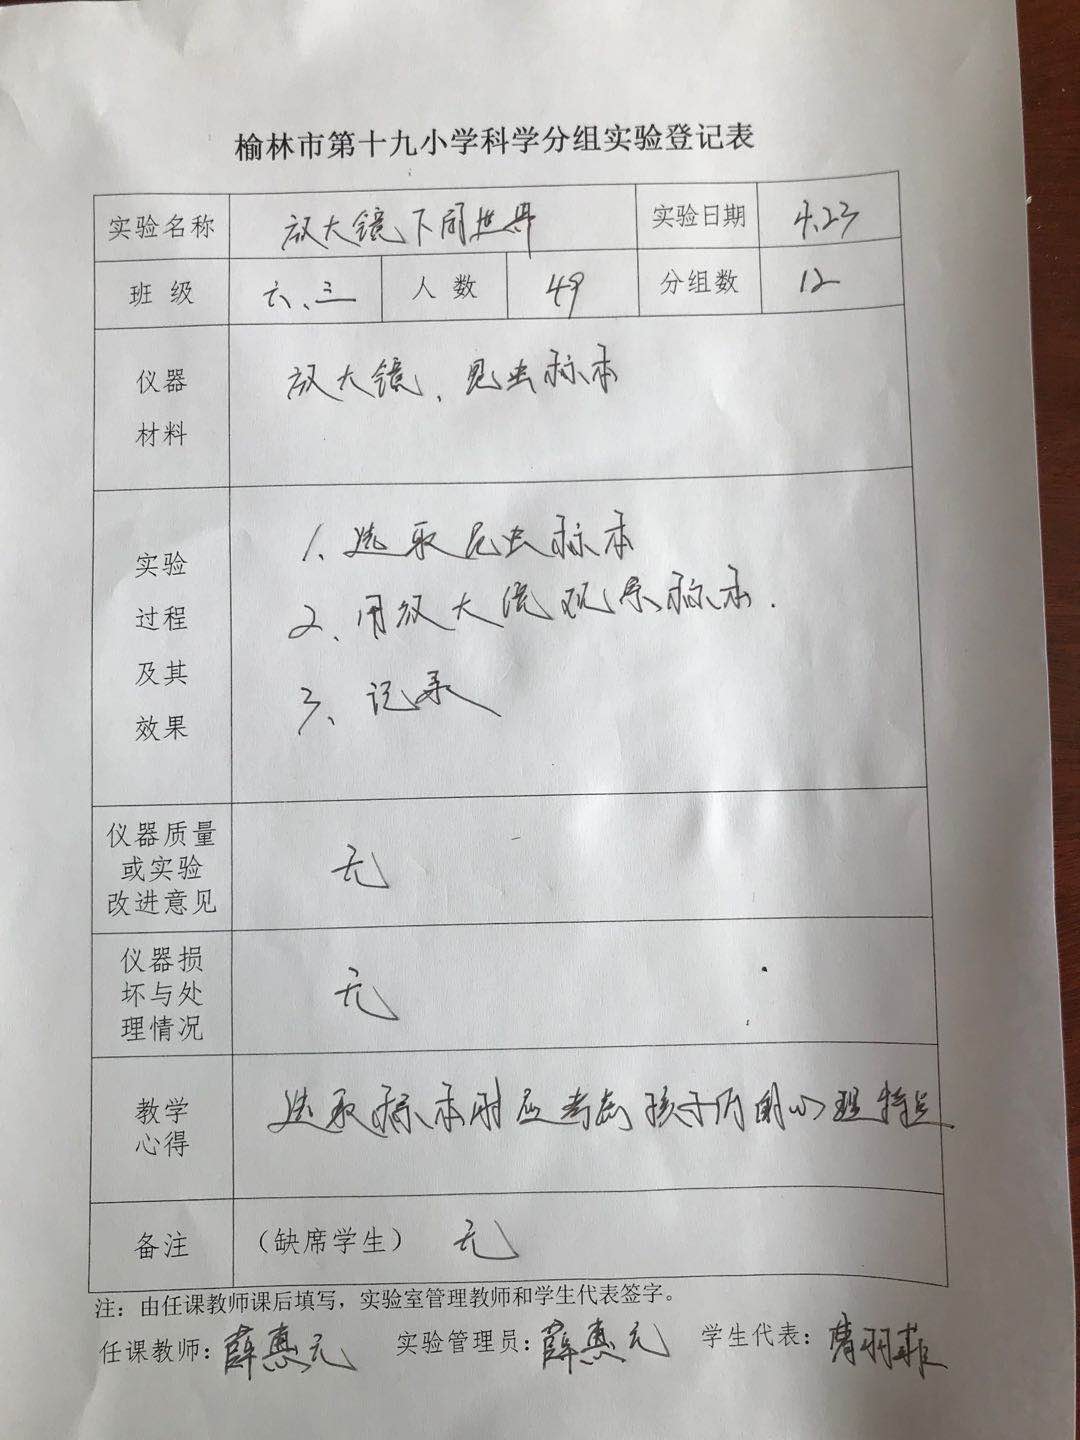 榆林市第十九小学科学分组实验登记表
实验名称 放大镜下的世界 实验日期 4.23
班 级 六、三 人 数 49 分组数 12
仪器
材料
放大镜、昆虫标本
实验
过程
及其
效果
1、选取昆虫标本
2、用放大镜观察标本.
3、记录
仪器质量
或实验
改进意见
无
仪器损
坏与处
理情况
无
教学
心得
选取标本时应考虑孩子们的心理特点
备注 （缺席学生） 无
注：由任课教师课后填写，实验室管理教师和学生代表签字。
任课教师：薛惠元 实验管理员：薛惠元 学生代表：羽菲